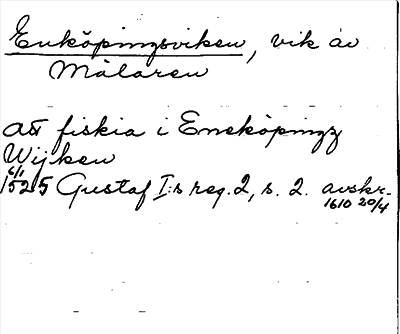 Enköpingsviken, vik av
Mälaren
att fiskia i Eneköpingz
Wijken
6/1
1525 Gustaf I:s reg. 2, s. 2. avskr.
1610 20/4